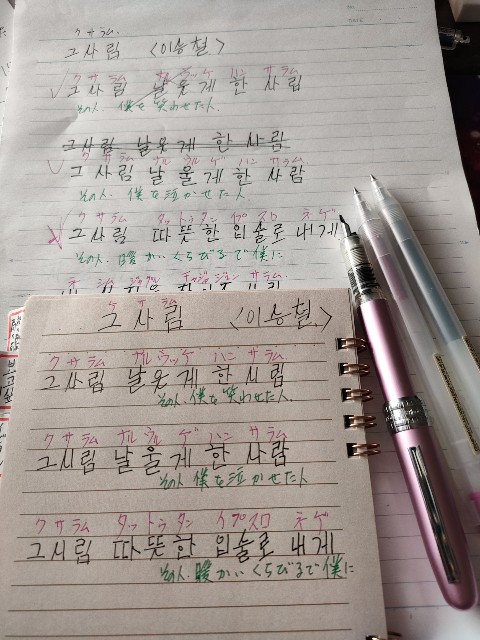 クサラム
그사림 〈이승철〉
クサラム ナルウッケ ハン サラム
그사림 날 웃게 한 사림
その人 僕を笑わせた人
그사림 날웃게 한 사림
クサラム ナル ウルゲ ハン サラム
그사림 날 울게 한 사람
その人 僕を泣かせた人
クサラム タットゥタン イプスロ ネゲ
그사림 따뜻한 입술로 내게
その人 暖かいくちびるで僕に
クサラム
그 사림 〈이승철〉
クサラム ナルウッケ ハン サラム
그사림 날웃게 한 시림
その人 僕を笑わせた人
クサラム ナルウル ゲ ハン サラム
그시림 날울게 한 사람
その人 僕を泣かせた人
クサラム タットゥタン イプスロ ネゲ
그시림 따뜻한 입술로 내게
その人 暖かいくちびるで僕に